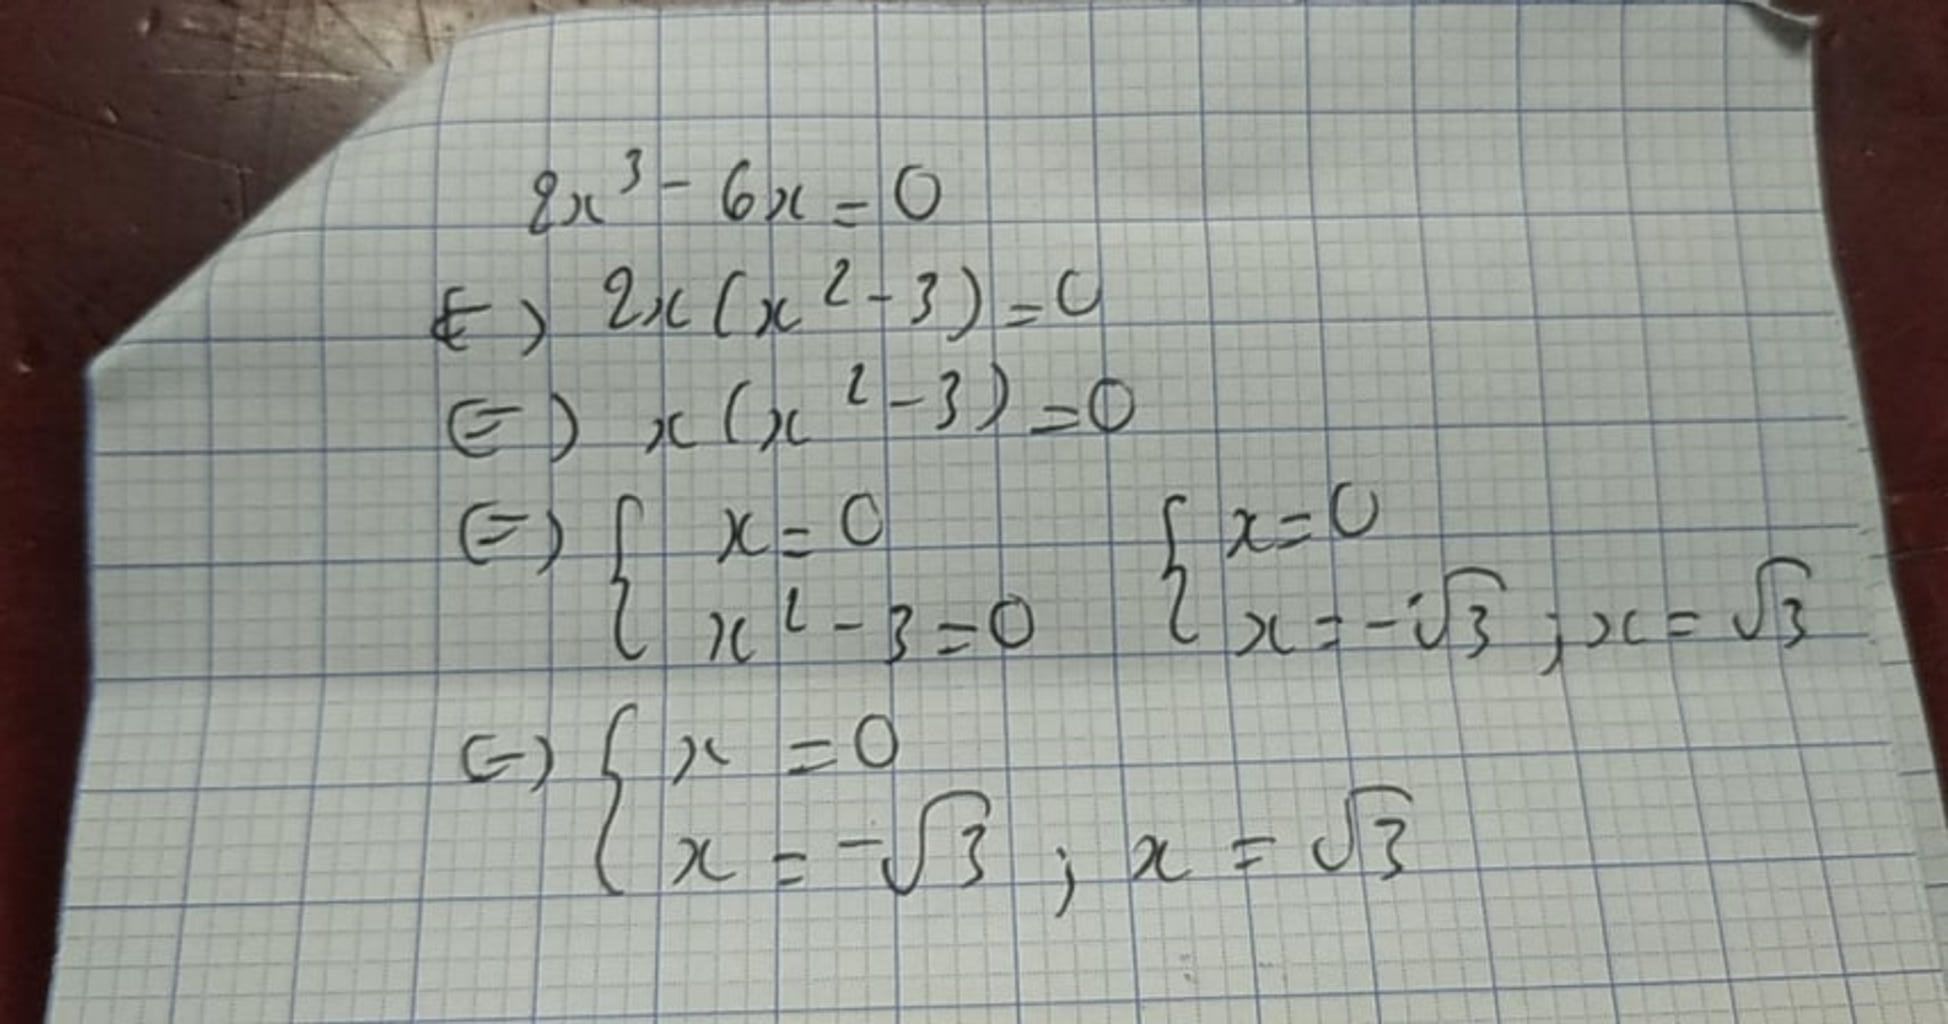 2x³ - 6x = 0
⇔ 2x(x² - 3) = 0
⇔ x(x² - 3) = 0
⇔ { x = 0 { x = 0
x² - 3 = 0 x = -√3 ; x = √3
⇔ { x = 0
x = -√3 ; x = √3